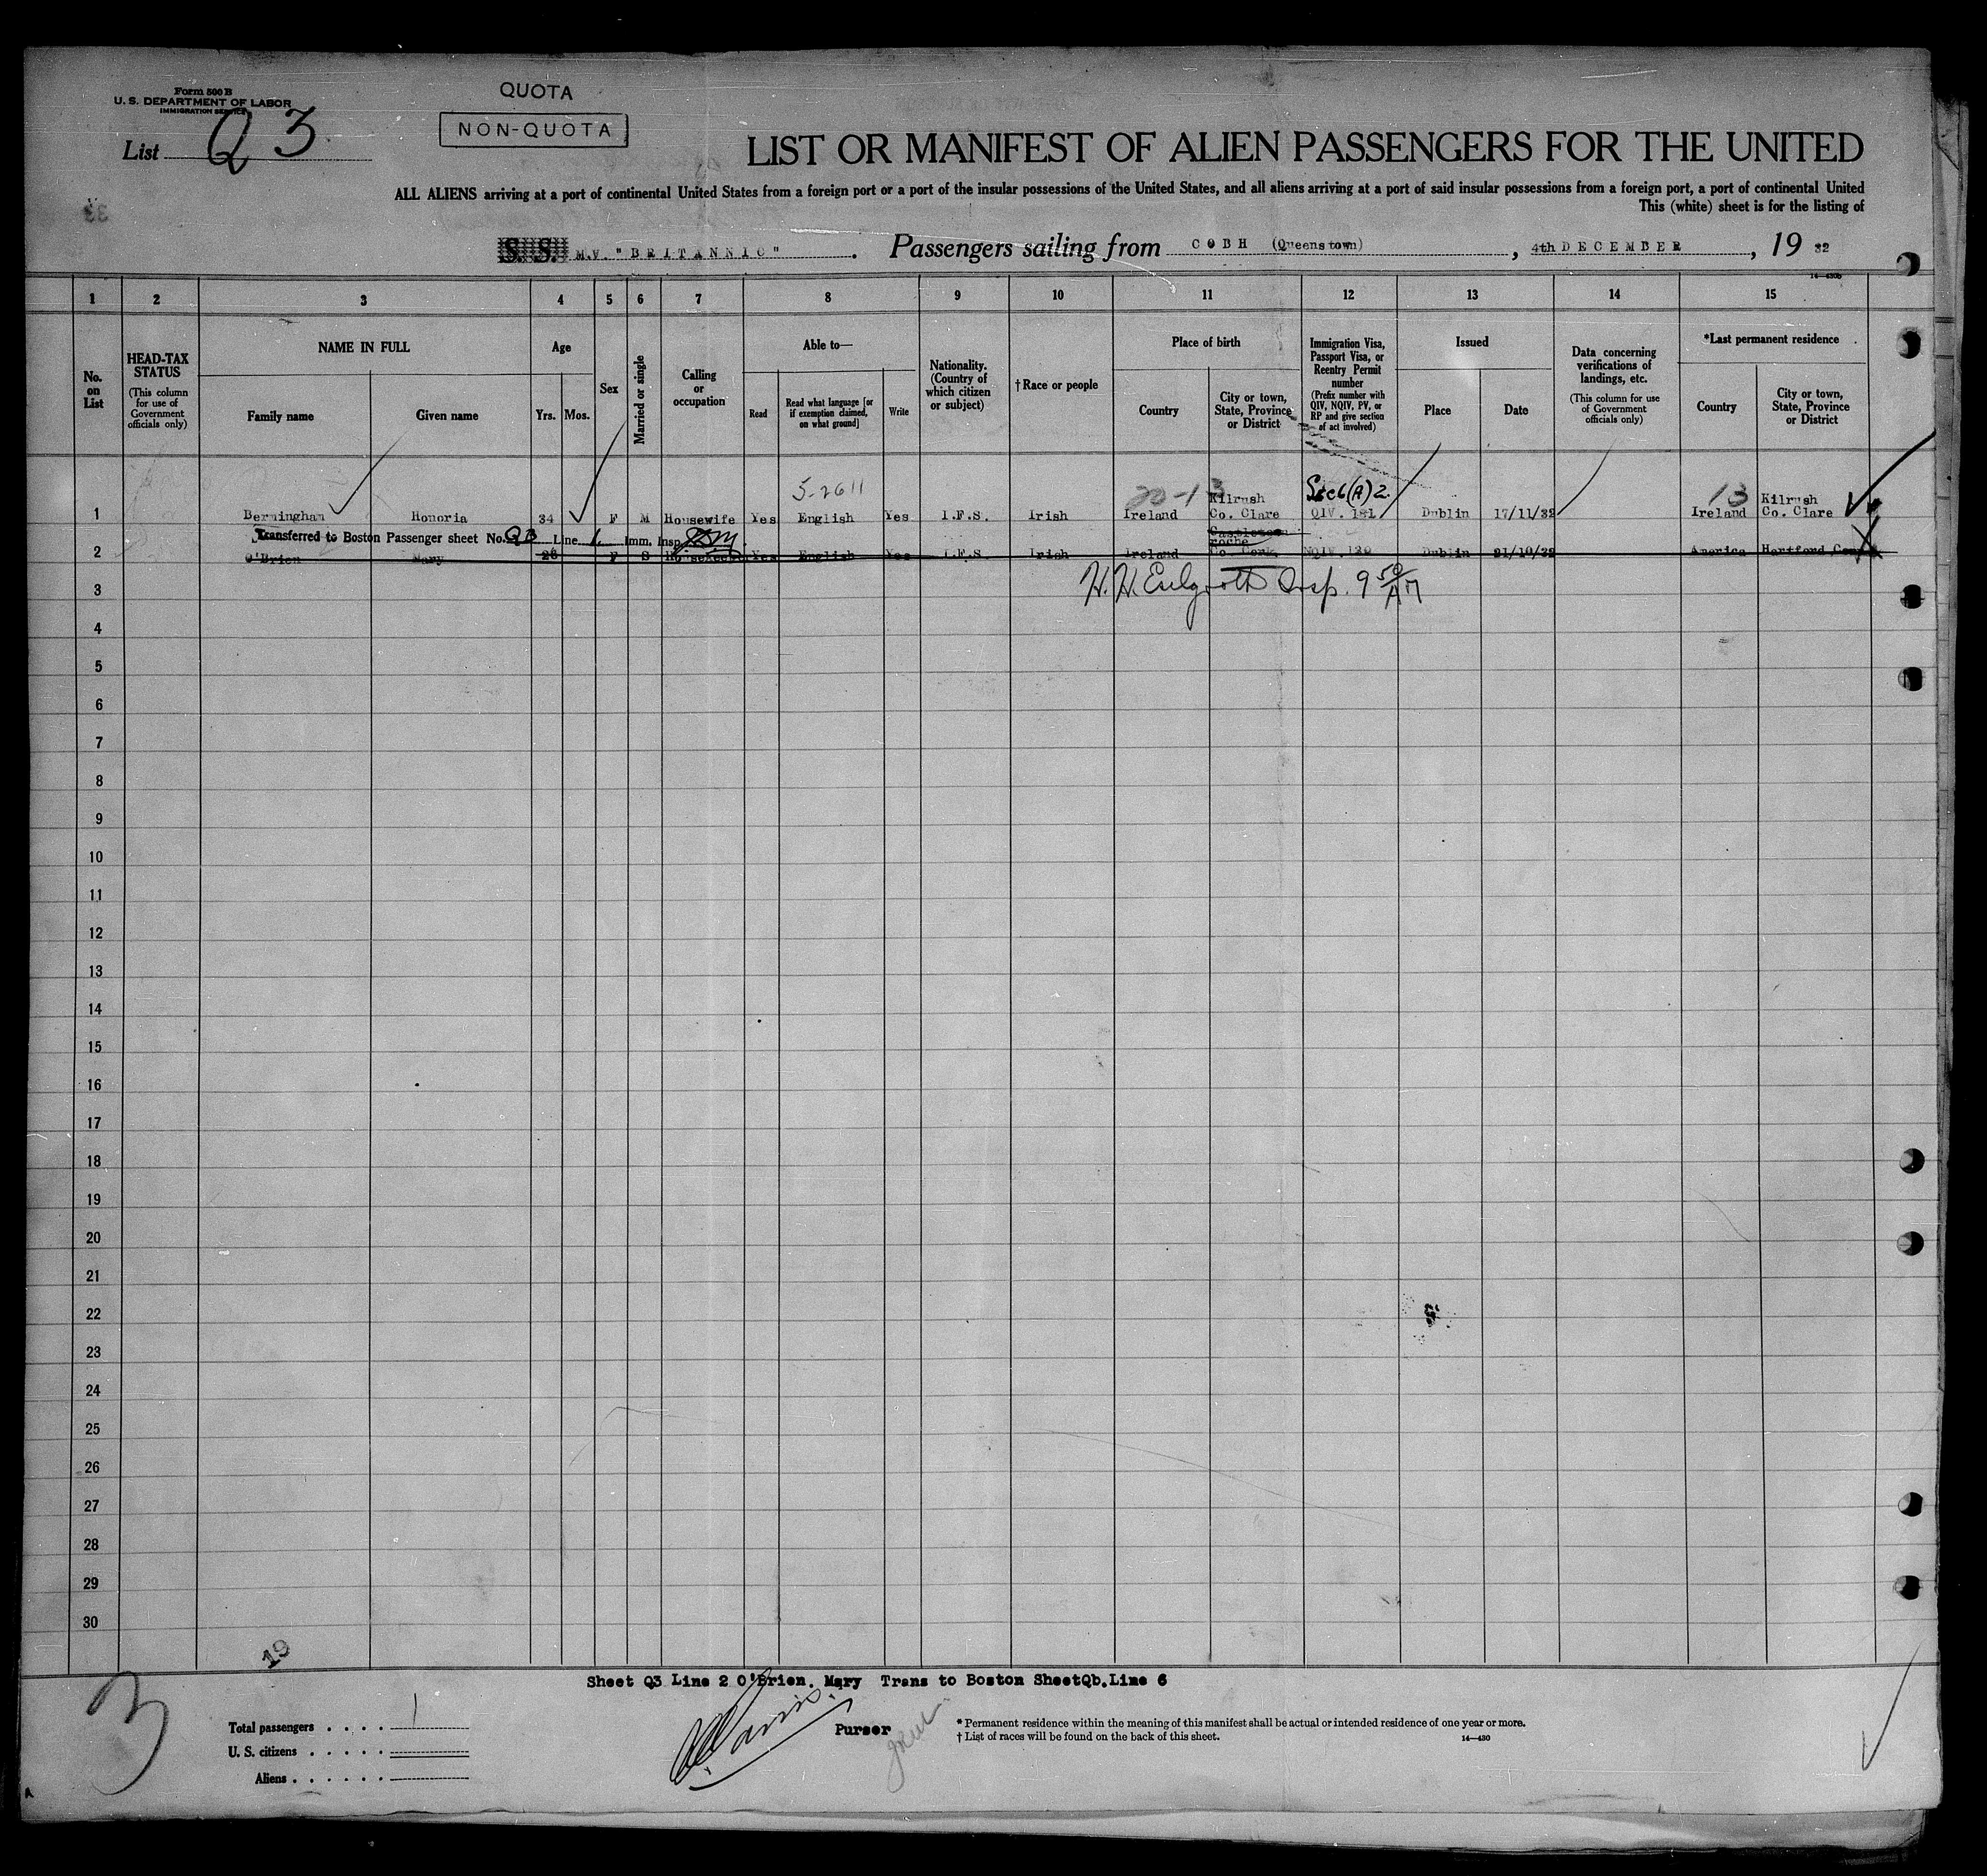 Form 500 B
U. S. DEPARTMENT OF LABOR
IMMIGRATION SERVICE
List Q 3
QUOTA
NON-QUOTA
LIST OR MANIFEST OF ALIEN PASSENGERS FOR THE UNITED
ALL ALIENS arriving at a port of continental United States from a foreign port or a port of the insular possessions of the United States, and all aliens arriving at a port of said insular possessions from a foreign port, a port of continental United
This (white) sheet is for the listing of
33
S. S. M.V. "BRITANNIC". Passengers sailing from COBH (Queenstown), 4th DECEMBER, 19 32
14—430b
1 2 3 4 5 6 7 8 9 10 11 12 13 14 15
No. on List
HEAD-TAX STATUS
(This column for use of Government officials only)
NAME IN FULL
Family name
Given name
Age
Yrs.
Mos.
Sex
Married or single
Calling or occupation
Able to—
Read
Read what language [or if exemption claimed, on what ground]
Write
Nationality. (Country of which citizen or subject)
†Race or people
Place of birth
Country
City or town, State, Province or District
Immigration Visa, Passport Visa, or Reentry Permit number
(Prefix number with QIV, NQIV, PV, or RP and give section of act involved)
Issued
Place
Date
Data concerning verifications of landings, etc.
(This column for use of Government officials only)
*Last permanent residence
Country
City or town, State, Province or District
5-2611 20-13 Kilrush Sec 6(A) 2. 13 Kilrush
1 Bermingham Honoria 34 F M Housewife Yes English Yes I.F.S. Irish Ireland Co. Clare QIV. 141 Dublin 17/11/32 Ireland Co. Clare
Transferred to Boston Passenger sheet No. Line 1. Imm. Insp. Castletown roche
2 O'Brien Mary 28 F S Yes English Yes I.F.S. Irish Ireland Co. Cork NQIV. 120 Dublin 21/10/32 America Hartford Conn
Insp. 9 50 AM
3
4
5
6
7
8
9
10
11
12
13
14
15
16
17
18
19
20
21
22
23
24
25
26
27
28
29
30
19
Sheet Q3 Line 2 O'Brien. Mary Trans to Boston SheetQb.Line 6
3
Total passengers . . . . 1
U. S. citizens . . . . .
Aliens . . . . . .
Purser
* Permanent residence within the meaning of this manifest shall be actual or intended residence of one year or more.
† List of races will be found on the back of this sheet.
14—430